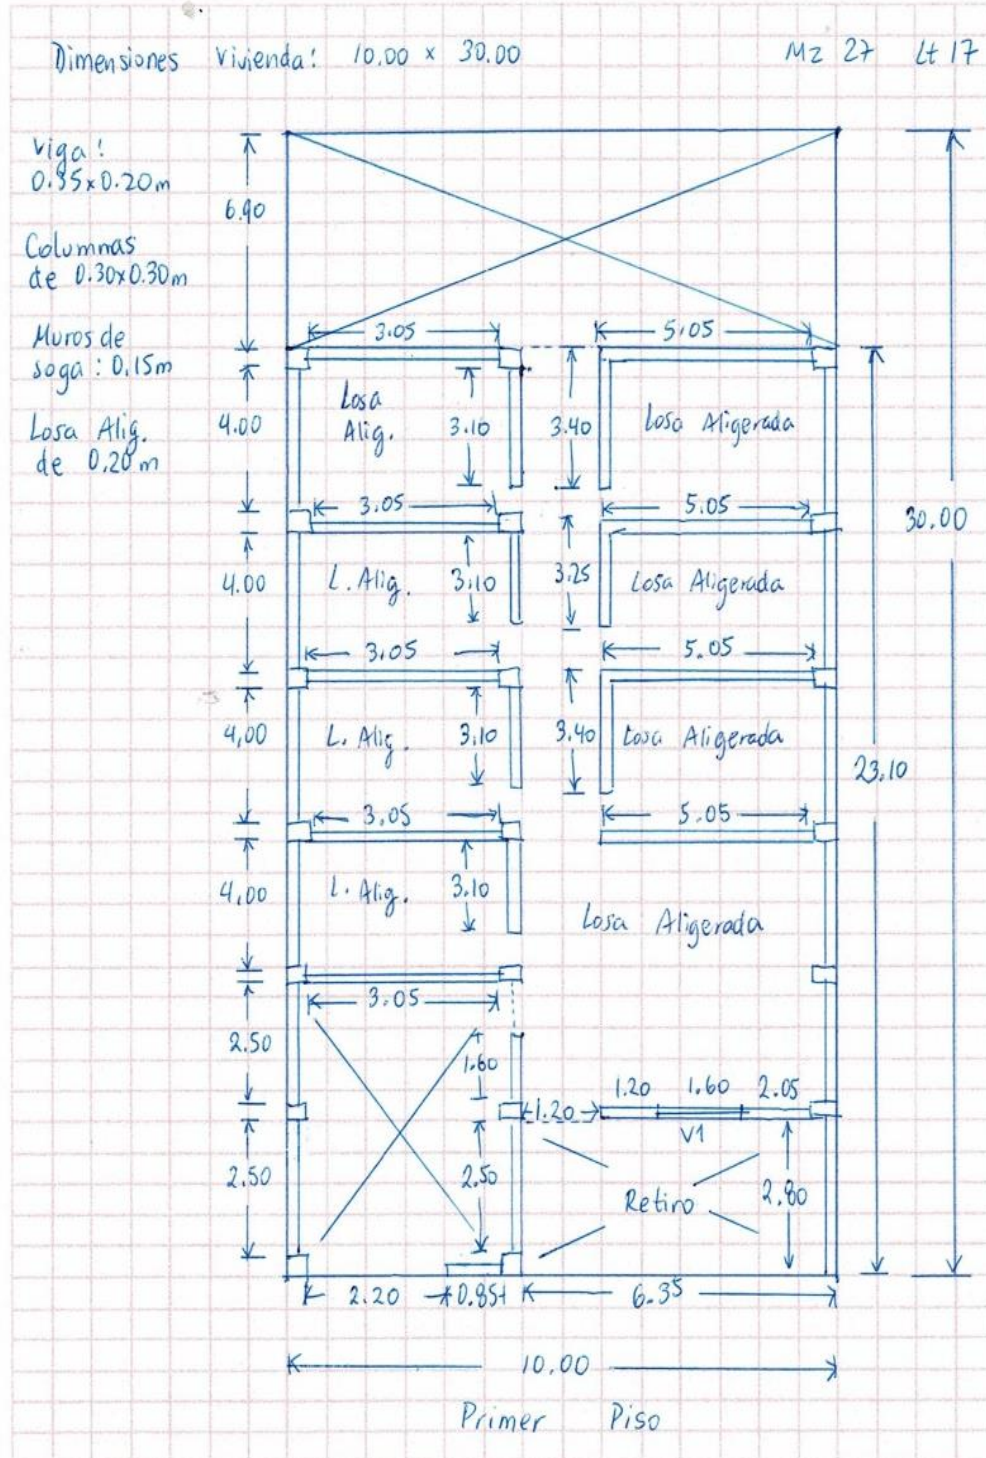 Dimensiones Vivienda: 10.00 x 30.00 Mz 27 Lt 17
Viga:
0.35x0.20m
Columnas
de 0.30x0.30m
Muros de
soga: 0.15m
Losa Alig.
de 0.20m
6.90
3.05 5.05
4.00 Losa Alig. 3.10 3.40 Losa Aligerada
3.05 5.05 30.00
4.00 L. Alig. 3.10 3.25 Losa Aligerada
3.05 5.05
4,00 L. Alig. 3.10 3.40 Losa Aligerada
23.10
3.05 5.05
4,00 L. Alig. 3.10
Losa Aligerada
3.05
2.50 1.60
1.20 1.20 1.60 2.05
V1
2.50 2.50 Retiro 2.80
2.20 0.85 6.35
10.00
Primer Piso